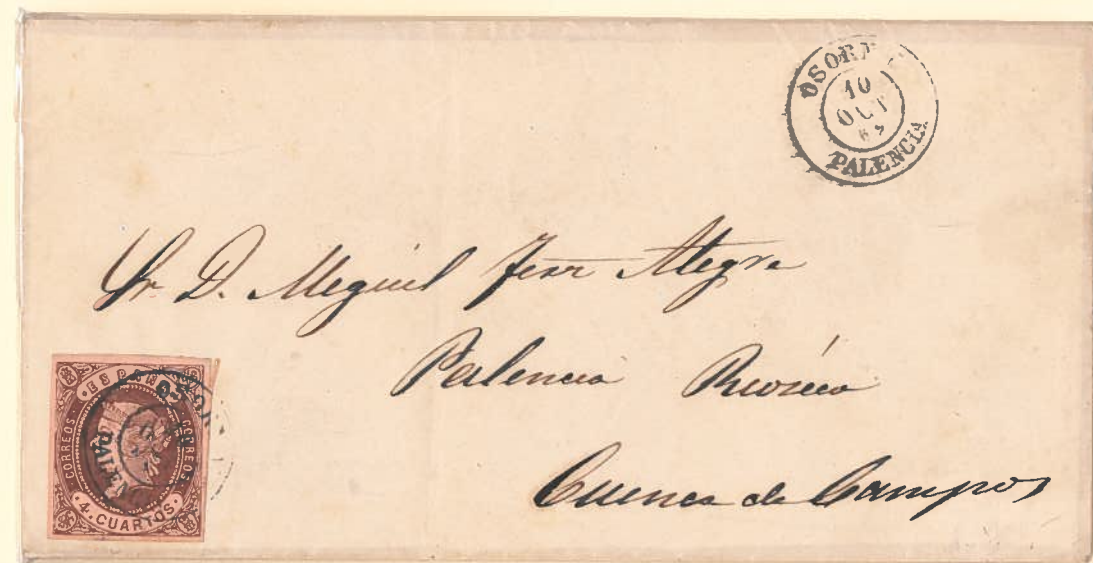 OSORNO
10
OCT
62
PALENCIA
Sr. D. Miguel Alegre
Palencia Rioseco
Cuenca de Campos
ESPAÑA
CORREOS CORREOS
4 CUARTOS
OSO
PALEN